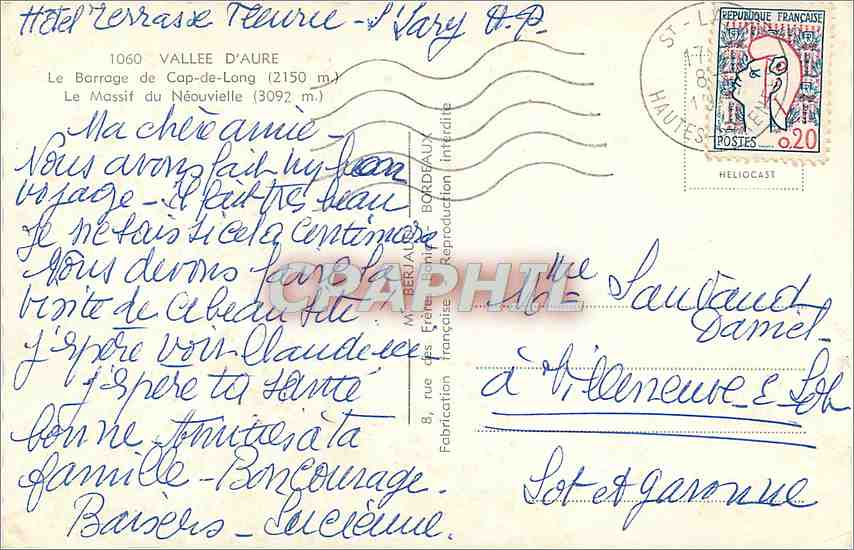 Hôtel Terrasse Fleurie - St Lary H.P.
1060 VALLEE D'AURE
Le Barrage de Cap-de-Long (2150 m.)
Le Massif du Néouvielle (3092 m.)
Ma chère amie -
Nous avons fait un bon
voyage - il fait très beau
Je ne sais si cela continuera
Nous devons faire la
visite de ce beau site.
J'espère voir Claude
J'espère ta santé
bonne Amitiés à ta
famille - Bon courage.
Baisers - Lucienne.
M. BERJAUD BORDEAUX
8, rue des Frères Bonie
Fabrication française Reproduction interdite
ST-L
17
8
HAUTES PYRENEES
REPUBLIQUE FRANÇAISE
POSTES 0,20
HELIOCAST
CPAPHIL
Mme
Daniel
à Villeneuve s Lot
Lot et Garonne